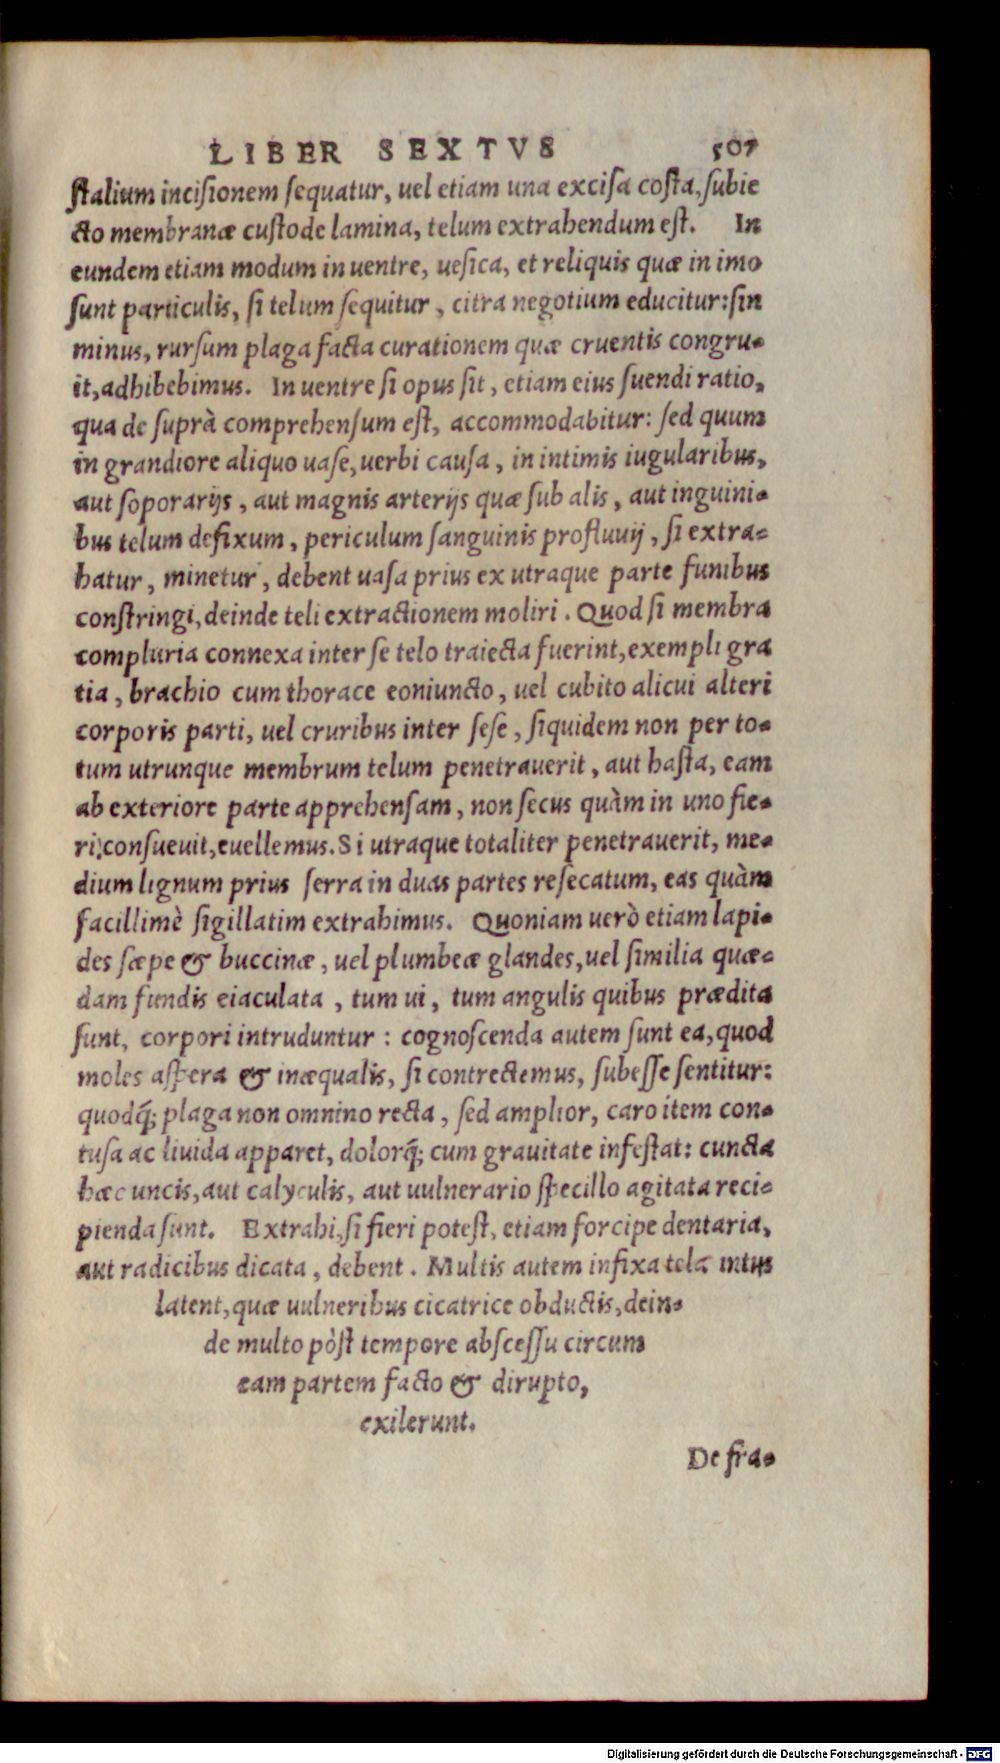 LIBER SEXTVS 507
ſtalium inciſionem ſequatur, uel etiam una exciſa coſta, ſubie
cto membranæ cuſtode lamina, telum extrahendum eſt. In
eundem etiam modum in uentre, ueſica, et reliquis quæ in imo
ſunt particulis, ſi telum ſequitur, citra negotium educitur: ſin
minus, rurſum plaga facta curationem quæ cruentis congru-
it, adhibebimus. In uentre ſi opus ſit, etiam eius ſuendi ratio,
qua de ſuprà comprehenſum eſt, accommodabitur: ſed quum
in grandiore aliquo uaſe, uerbi cauſa, in intimis iugularibus,
aut ſoporarijs, aut magnis arterijs quæ ſub alis, aut inguini-
bus telum defixum, periculum ſanguinis profluuij, ſi extra-
hatur, minetur, debent uaſa prius ex utraque parte funibus
conſtringi, deinde teli extractionem moliri. Quod ſi membra
compluria connexa inter ſe telo traiecta fuerint, exempli gra
tia, brachio cum thorace coniuncto, uel cubito alicui alteri
corporis parti, uel cruribus inter ſeſe, ſiquidem non per to-
tum utrunque membrum telum penetrauerit, aut haſta, eam
ab exteriore parte apprehenſam, non ſecus quàm in uno fie-
ri conſueuit, euellemus. Si utraque totaliter penetrauerit, me-
dium lignum prius ſerra in duas partes reſecatum, eas quàm
facillimè ſigillatim extrahimus. Quoniam uerò etiam lapi-
des ſæpe & buccinæ, uel plumbeæ glandes, uel ſimilia quæ-
dam fundis eiaculata, tum ui, tum angulis quibus prædita
ſunt, corpori intruduntur: cognoſcenda autem ſunt ea, quod
moles aſpera & inæqualis, ſi contrectemus, ſubeſſe ſentitur:
quodq́; plaga non omnino recta, ſed amplior, caro item con-
tuſa ac liuida apparet, dolorq́; cum grauitate infeſtat: cuncta
hæc uncis, aut calyculis, aut uulnerario ſpecillo agitata reci-
pienda ſunt. Extrahi, ſi fieri poteſt, etiam forcipe dentaria,
aut radicibus dicata, debent. Multis autem infixa tela intus
latent, quæ uulneribus cicatrice obductis, dein-
de multo pòſt tempore abſceſſu circum
eam partem facto & dirupto,
exilerunt.
De fra-
Digitalisierung gefördert durch die Deutsche Forschungsgemeinschaft - DFG